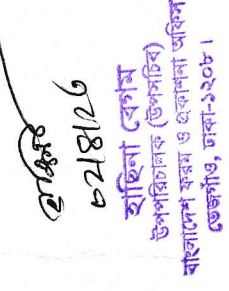 ০২/৪/২৬
হাছিনা বেগম
উপপরিচালক (উপসচিব)
বাংলাদেশ ফরম ও প্রকাশনা অফিস
তেজগাঁও, ঢাকা-১২০৮।